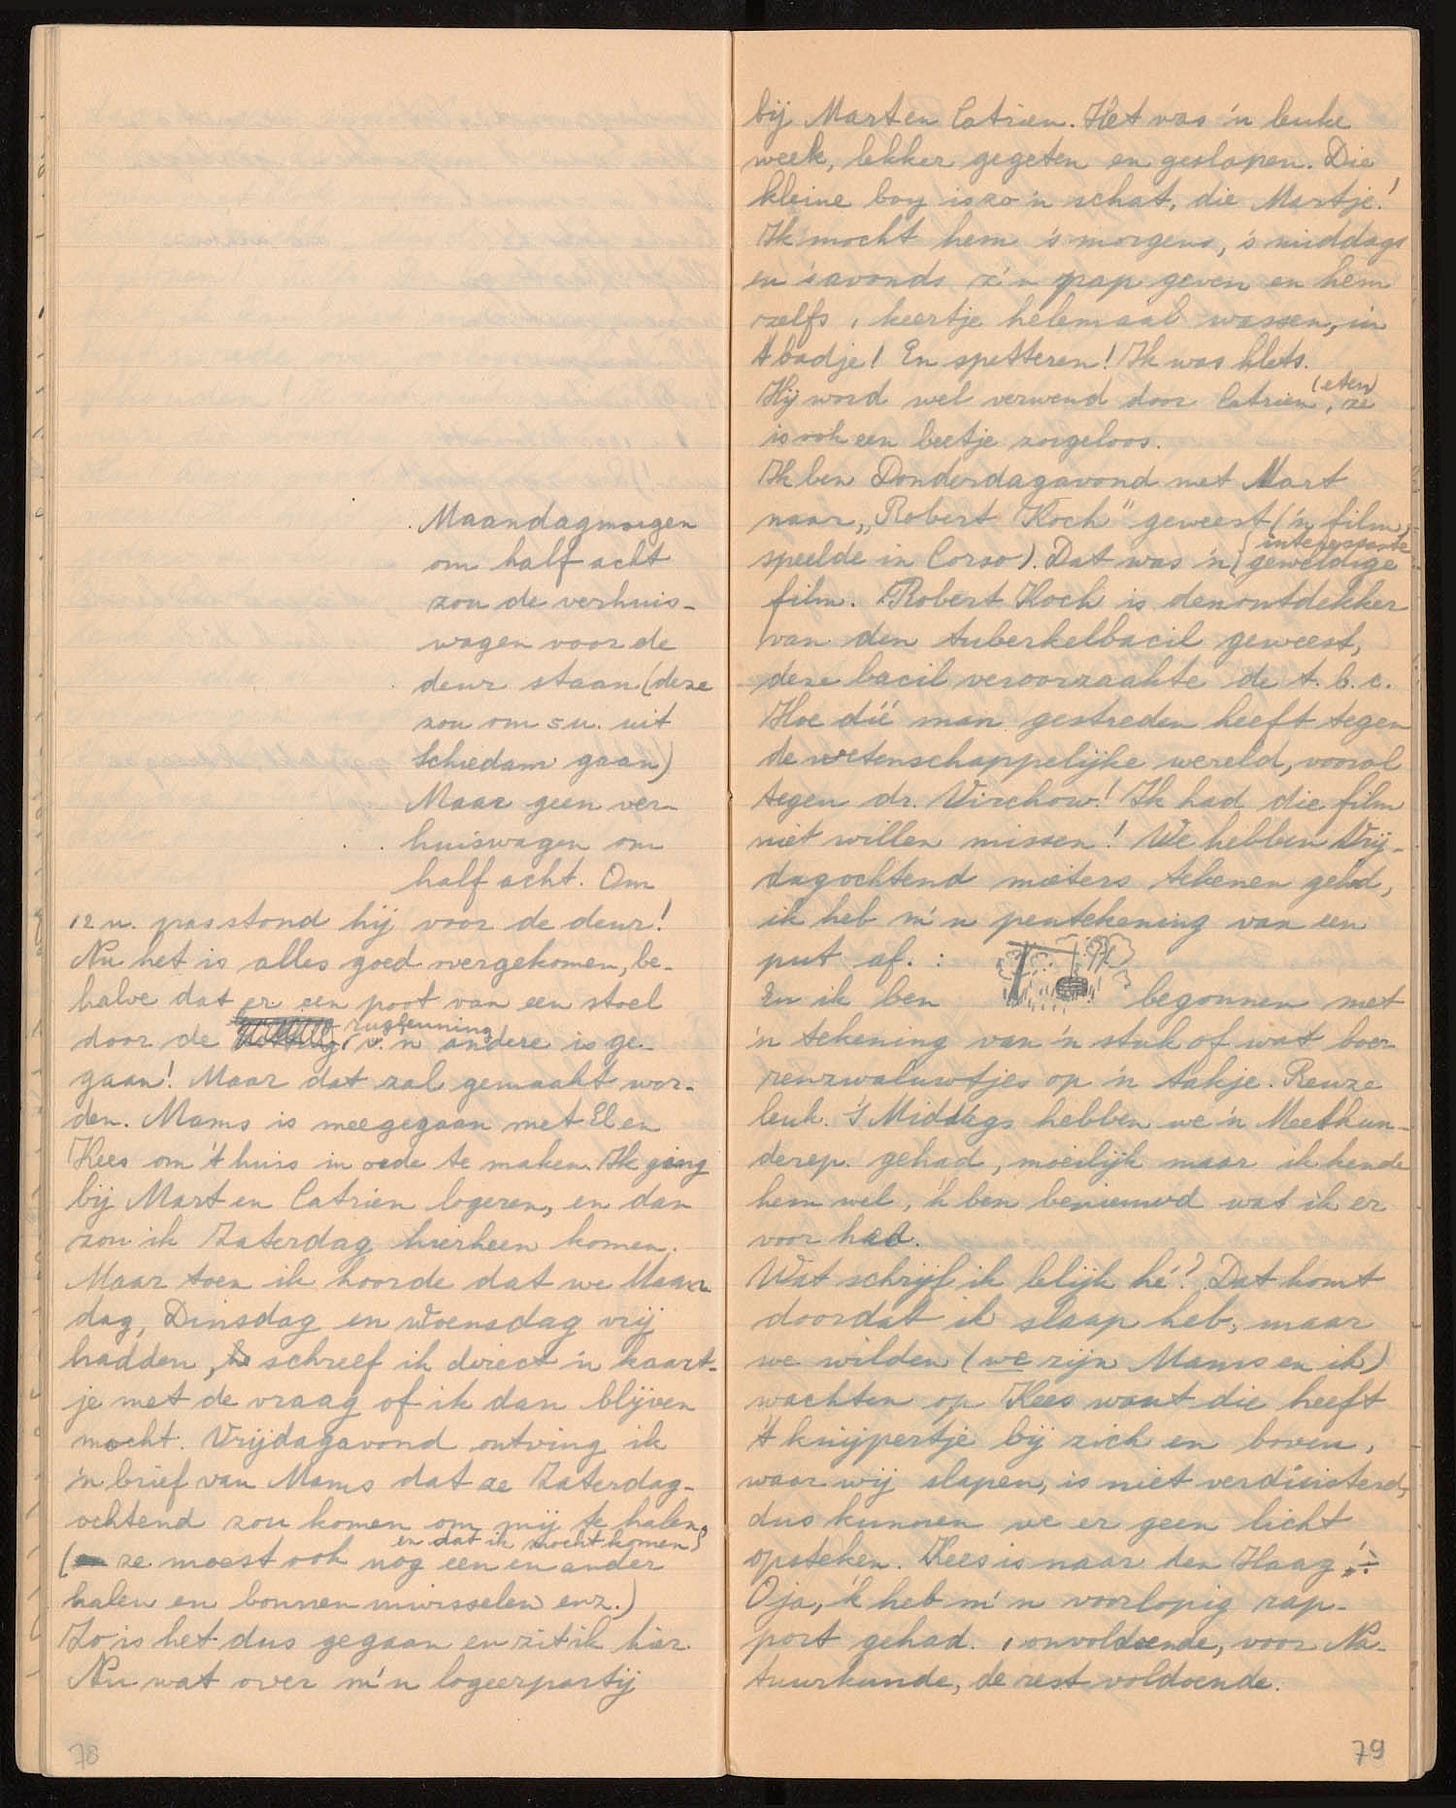 Maandagmorgen
om half acht
zou de verhuis-
wagen voor de
deur staan (deze
zou om 5 u. uit
Schiedam gaan)
Maar geen ver-
huiswagen om
half acht. Om
12 u. pas stond hij voor de deur!
Nu het is alles goed overgekomen, be-
halve dat er een poot van een stoel
rugleuning
door de v. 'n andere is ge-
gaan! Maar dat zal gemaakt wor-
den. Mams is meegegaan met El en
Kees om 't huis in orde te maken. Ik ging
bij Mart en Catrien logeren, en dan
zou ik Zaterdag hierheen komen.
Maar toen ik hoorde dat we Maan
dag, Dinsdag en Woensdag vrij
hadden, schreef ik direct 'n kaart-
je met de vraag of ik dan blijven
mocht. Vrijdagavond ontving ik
'n brief van Mams dat ze Zaterdag-
ochtend zou komen om mij te halen
en dat ik mocht komen
(ze moest ook nog een en ander
halen en bonnen inwisselen enz.)
Zo is het dus gegaan en zit ik hier.
Nu wat over m'n logeerpartij
78
bij Mart en Catrien. Het was 'n leuke
week, lekker gegeten en geslapen. Die
kleine boy is zo'n schat, die Martje!
Ik mocht hem 's morgens, 's middags
en 's avonds z'n pap geven en hem
zelfs 1 keertje helemaal wassen, in
't badje! En spetteren! Ik was klets.
(eten)
Hij word wel verwend door Catrien, ze
is ook een beetje zorgeloos.
Ik ben Donderdagavond met Mart
naar „Robert Koch" geweest ('n film,
interessante
speelde in Corso). Dat was 'n geweldige
film. Robert Koch is den ontdekker
van den tuberkelbacil geweest,
deze bacil veroorzaakte de t.b.c.
Hoe díé man gestreden heeft tegen
de wetenschappelijke wereld, vooral
tegen dr. Virchow! Ik had die film
niet willen missen! We hebben Vrij-
dagochtend meters tekenen gehad,
ik heb m'n pentekening van een
put af. :
En ik ben begonnen met
'n tekening van 'n stuk of wat boer
renzwaluwtjes op 'n takje. Reuze
leuk. 's Middags hebben we 'n Meetkun-
derep. gehad, moeilijk maar ik kende
hem wel, 'k ben benieuwd wat ik er
voor had.
Wat schrijf ik lelijk hé? Dat komt
doordat ik slaap heb, maar
we wilden (we zijn Mams en ik)
wachten op Kees want die heeft
't knijpertje bij zich en boven,
waar wij slapen, is niet verduisterd,
dus kunnen we er geen licht
opsteken. Kees is naar den Haag
O ja, 'k heb m'n voorlopig rap-
port gehad. 1 onvoldoende, voor Na-
tuurkunde, de rest voldoende.
79